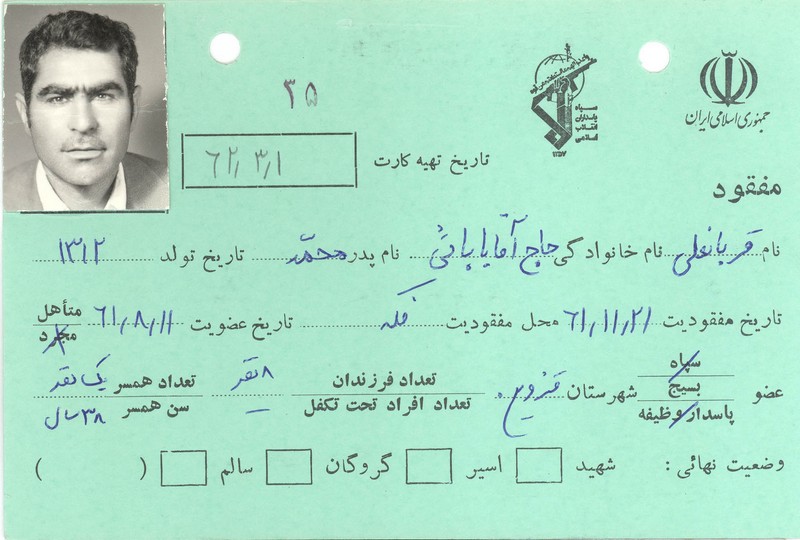 جمهوری اسلامی ایران
سپاه پاسداران انقلاب اسلامی
۱۳۵۷
۳۵
تاریخ تهیه کارت ۶۲٫۳٫۱
مفقود
نام قربانعلی نام خانوادگی حاج آقابابائی نام پدر محمد تاریخ تولد ۱۳۱۲
تاریخ مفقودیت ۶۱٫۱۱٫۲۱ محل مفقودیت فکه تاریخ عضویت ۶۱٫۸٫۱۱ متأهل
مجرد
عضو سپاه
بسیج
پاسدار وظیفه
شهرستان قزوین تعداد فرزندان ۸ نفر تعداد همسر یک نفر
تعداد افراد تحت تکفل — سن همسر ۳۸ سال
وضعیت نهائی : شهید اسیر گروگان سالم ( )